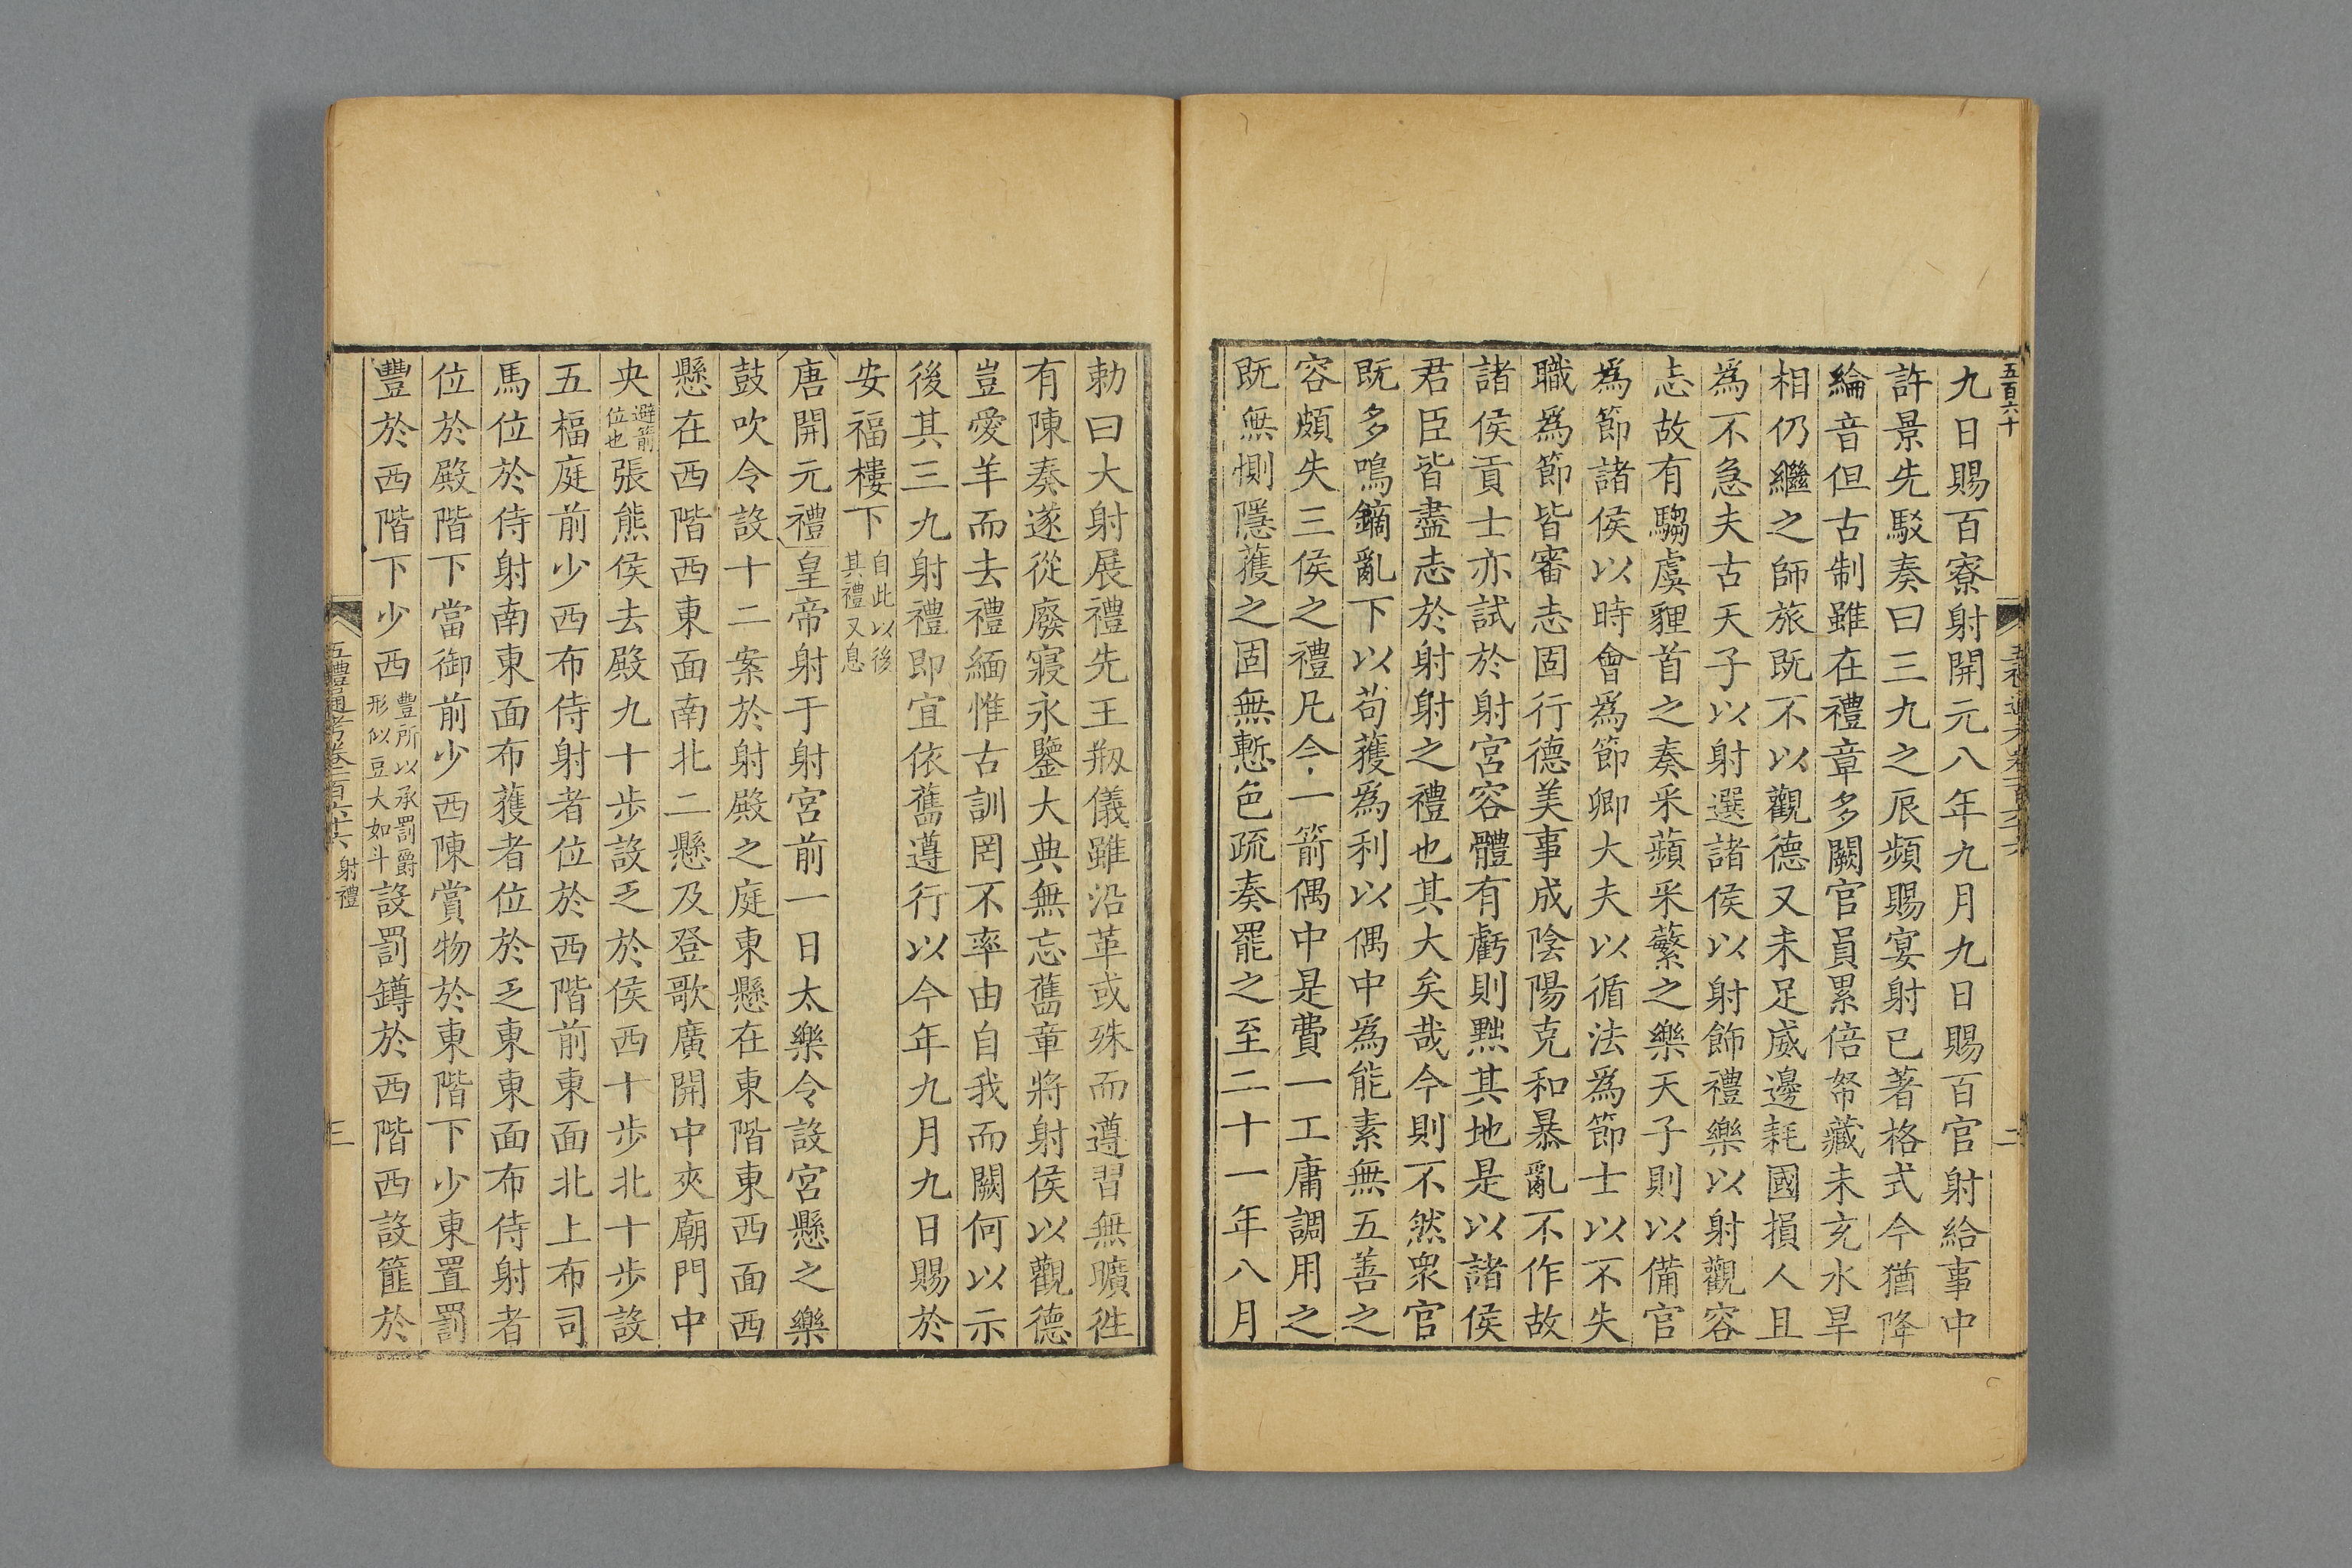 五百六十
九日賜百寮射開元八年九月九日賜百官射給事中
許景先駁奏曰三九之辰頻賜宴射已著格式今猶降
綸音但古制雖在禮章多闕官員累倍帑藏未充水旱
相仍繼之師旅既不以觀德又未足威邊耗國損人且
爲不急夫古天子以射選諸侯以射飾禮樂以射觀容
志故有騶虞貍首之奏采蘋采蘩之樂天子則以備官
爲節諸侯以時會爲節卿大夫以循法爲節士以不失
職爲節皆審志固行德美事成陰陽克和暴亂不作故
諸侯貢士亦試於射宮容體有虧則黜其地是以諸侯
君臣皆盡志於射射之禮也其大矣哉今則不然衆官
既多鳴鏑亂下以苟獲爲利以偶中爲能素無五善之
容頗失三侯之禮凡今一箭偶中是費一工庸調用之
既無惻隱獲之固無慙色疏奏罷之至二十一年八月
勅曰大射展禮先王剏儀雖沿革或殊而遵習無曠往
有陳奏遂從廢寢永鑒大典無忘舊章將射侯以觀德
豈愛羊而去禮緬惟古訓罔不率由自我而闕何以示
後其三九射禮即宜依舊遵行以今年九月九日賜於
安福樓下自此以後其禮又息
唐開元禮皇帝射于射宮前一日太樂令設宮懸之樂
鼓吹令設十二案於射殿之庭東懸在東階東西面西
懸在西階西東面南北二懸及登歌廣開中夾廟門中
央避箭位也張熊侯去殿九十步設乏於侯西十步北十步設
五福庭前少西布侍射者位於西階前東面北上布司
馬位於侍射南東面布獲者位於乏東東面布侍射者
位於殿階下當御前少西陳賞物於東階下少東置罰
豐於西階下少西豐所以承罰爵形似豆大如斗設罰鐏於西階西設篚於
五禮通考卷一百六十六 射禮
三